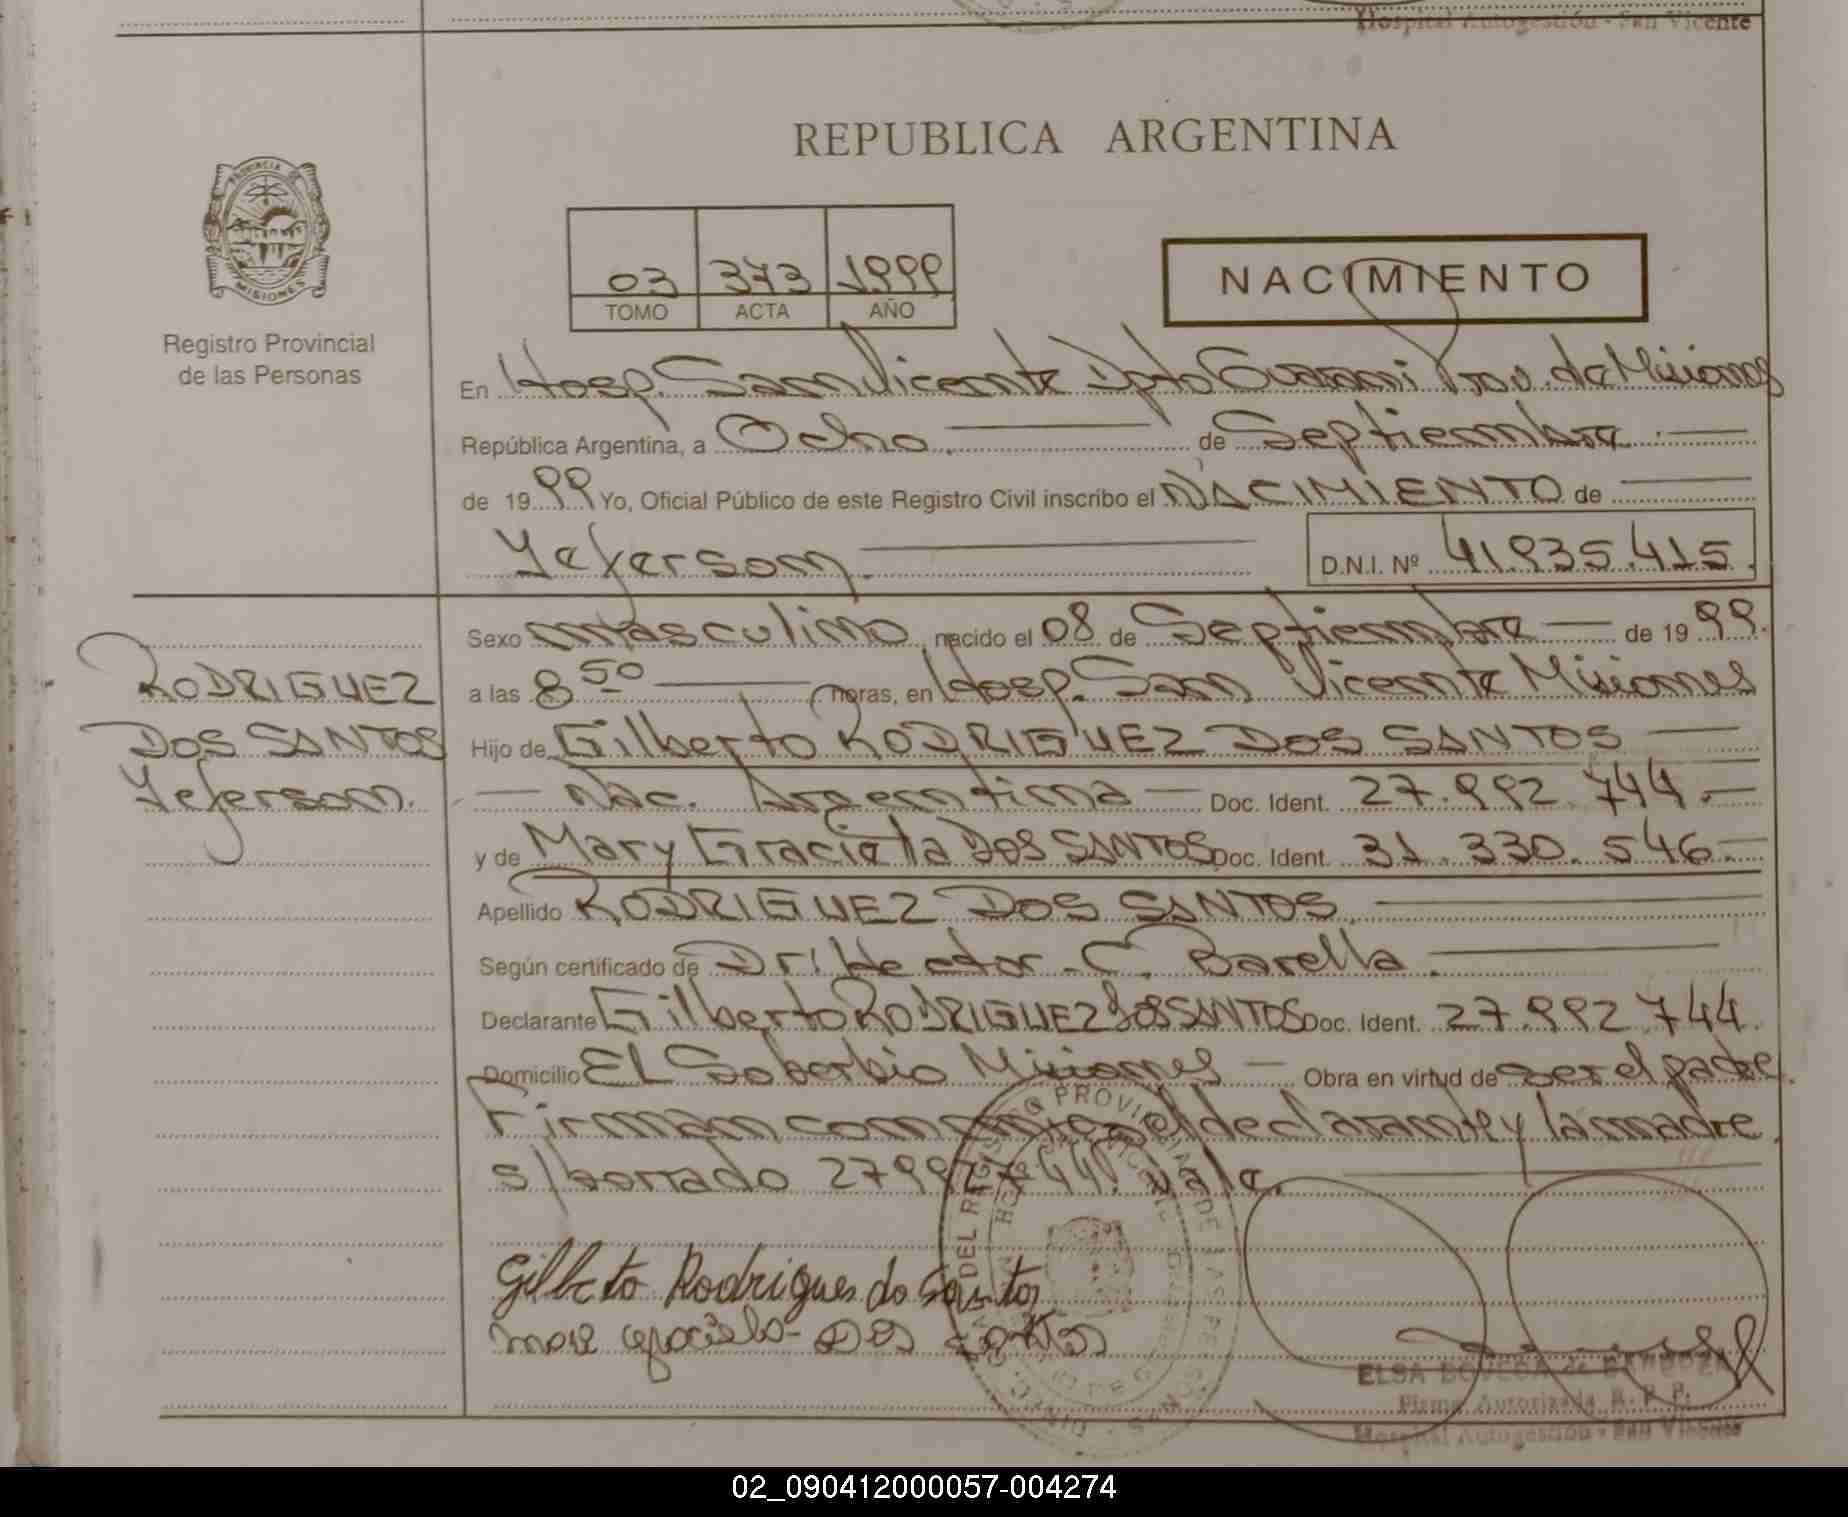 Hospital Autogestión - San Vicente
REPUBLICA ARGENTINA
PROVINCIA DE
MISIONES
Registro Provincial
de las Personas
03 373 1999
TOMO ACTA AÑO
NACIMIENTO
En Hosp. San Vicente Dpto Guarani Prov. de Misiones
República Argentina, a Ocho. de Septiembre
de 1999 Yo, Oficial Público de este Registro Civil inscribo el NACIMIENTO de
Yeferson. D.N.I. Nº 41.935.415.
Sexo masculino nacido el 08 de Septiembre de 1999.
RODRIGUEZ
DOS SANTOS
Yeferson.
a las 8 50 horas, en Hosp. San Vicente Misiones
Hijo de Gilberto RODRIGUEZ DOS SANTOS
Nac. Argentina Doc. Ident. 27.992.744.
y de Mary Graciela DOS SANTOS Doc. Ident. 31.330.546.
Apellido RODRIGUEZ DOS SANTOS.
Según certificado de Dr. Hector C. Barella.
Declarante Gilberto RODRIGUEZ DOS SANTOS Doc. Ident. 27.992.744.
Domicilio EL Soberbio Misiones Obra en virtud de ser el padre.
Firman conmigo el declarante y la madre.
s/borrado 27992744. Vale.
Gilberto Rodrigues do Santos
DOS
ELSA BOVEDA de
Firma Autorizada R. P. P.
Hospital Autogestión - San Vicente
02_090412000057-004274